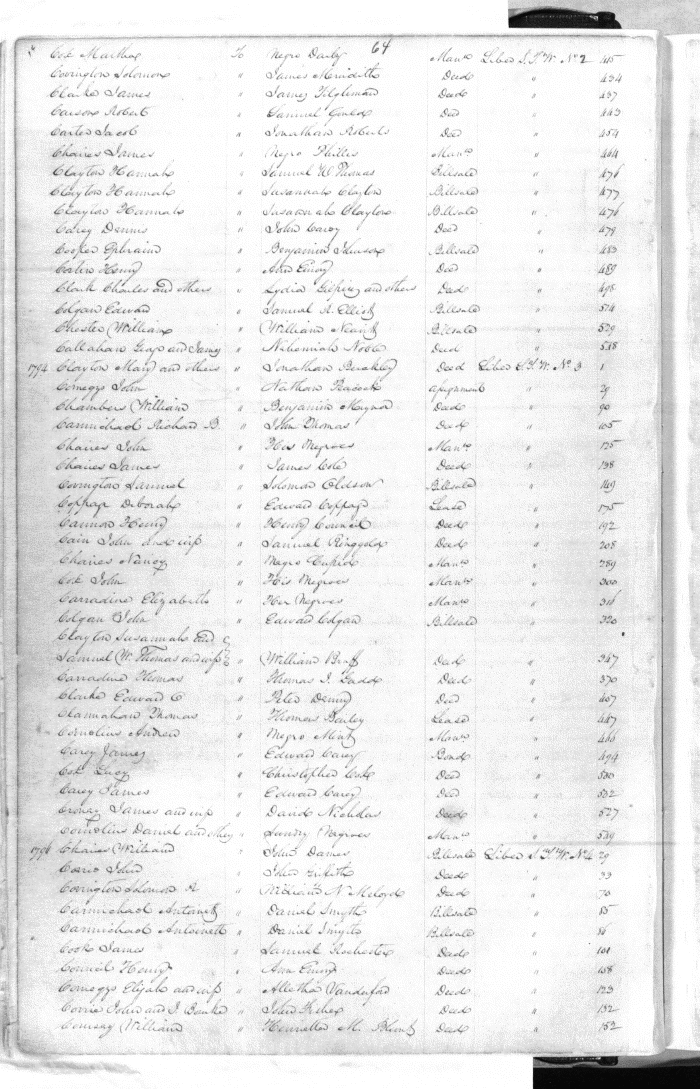 64
Cox Martha To Negro Darby Man.ⁿ Liber S.T.W. No 2 415
Covington Solomon " James Meridith Deed " 434
Clarke James " James Tilghman Deed " 437
Carson Robert " Samuel Gould Deed " 443
Carter Jacob " Jonathan Roberts Deed " 454
Chaires James " Negro Phillis Man.ⁿ " 464
Clayton Hannah " Samuel W Thomas Billsale " 476
Clayton Hannah " Susannah Clayton Billsale " 477
Clayton Hannah " Susannah Clayton Billsale " 476
Carey Dennis " John Carey Deed " 478
Cooper Ephraim " Benjamin Billsale " 483
Henry " Ann Emory Deed " 489
Clark Charles and others " Lydia and others Deed " 498
Colgan Edward " Samuel A. Elliott Billsale " 514
Chester William " William Billsale " 529
Callahan and James " Nehemiah Noble Deed " 538
1794 Clayton Mary and others " Jonathan Deed Liber S.T.W. No. 3 1
Comegys John " Nathan Peacock Assignment " 29
Chambers William " Benjamin Deed " 90
Carmichael Richard B. " John Thomas Deed " 105
Chaires John " His Negroes Man.ⁿ " 135
Chaires James " James Cole Deed " 138
Covington Samuel " Solomon Billsale " 149
Coppage Deborah " Edward Coppage Lease " 175
Cannon Henry " Henry Council Deed " 192
Cain John and wife " Samuel Ringgold Deed " 208
Chaires Nancy " Negro Cupid Man.ⁿ " 289
Cox John " His Negroes Man.ⁿ " 300
Carradine Elizabeth " Her Negroes Man.ⁿ " 316
Colgan John " Edward Colgan Billsale " 320
Clayton Susannah and
Samuel W. Thomas and wife " William Deed " 347
Carradine Thomas " Thomas I. Gadd Deed " 370
Clarke Edward C " Peter Denny Deed " 407
Clannahan Thomas " Thomas Bailey Lease " 447
Cornelius Andrew " Negro Minty Man.ⁿ " 466
Carey James " Edward Carey Bond " 494
Cox Lucy " Christopher Cox Deed " 530
Carey James " Edward Carey Deed " 532
James and wife " David Nicholas Deed " 527
Cornelius Daniel and others " Sundry Negroes Man.ⁿ " 549
1796 Chaires William " John Dames Billsale Liber S.T.W. No. 4 29
John " John Deed " 33
Covington Solomon " William N. Deed " 70
Carmichael Antoinett " Daniel Smyth Billsale " 85
Carmichael Antoinett " Daniel Smyth Billsale " 86
Cook James " Samuel Rochester Deed " 101
Council Henry " Ann Emory Deed " 108
Comegys Elijah and wife " Alletha Vanderford Deed " 123
John and J. " John Deed " 132
Coursey William " Henrietta M. Deed " 152